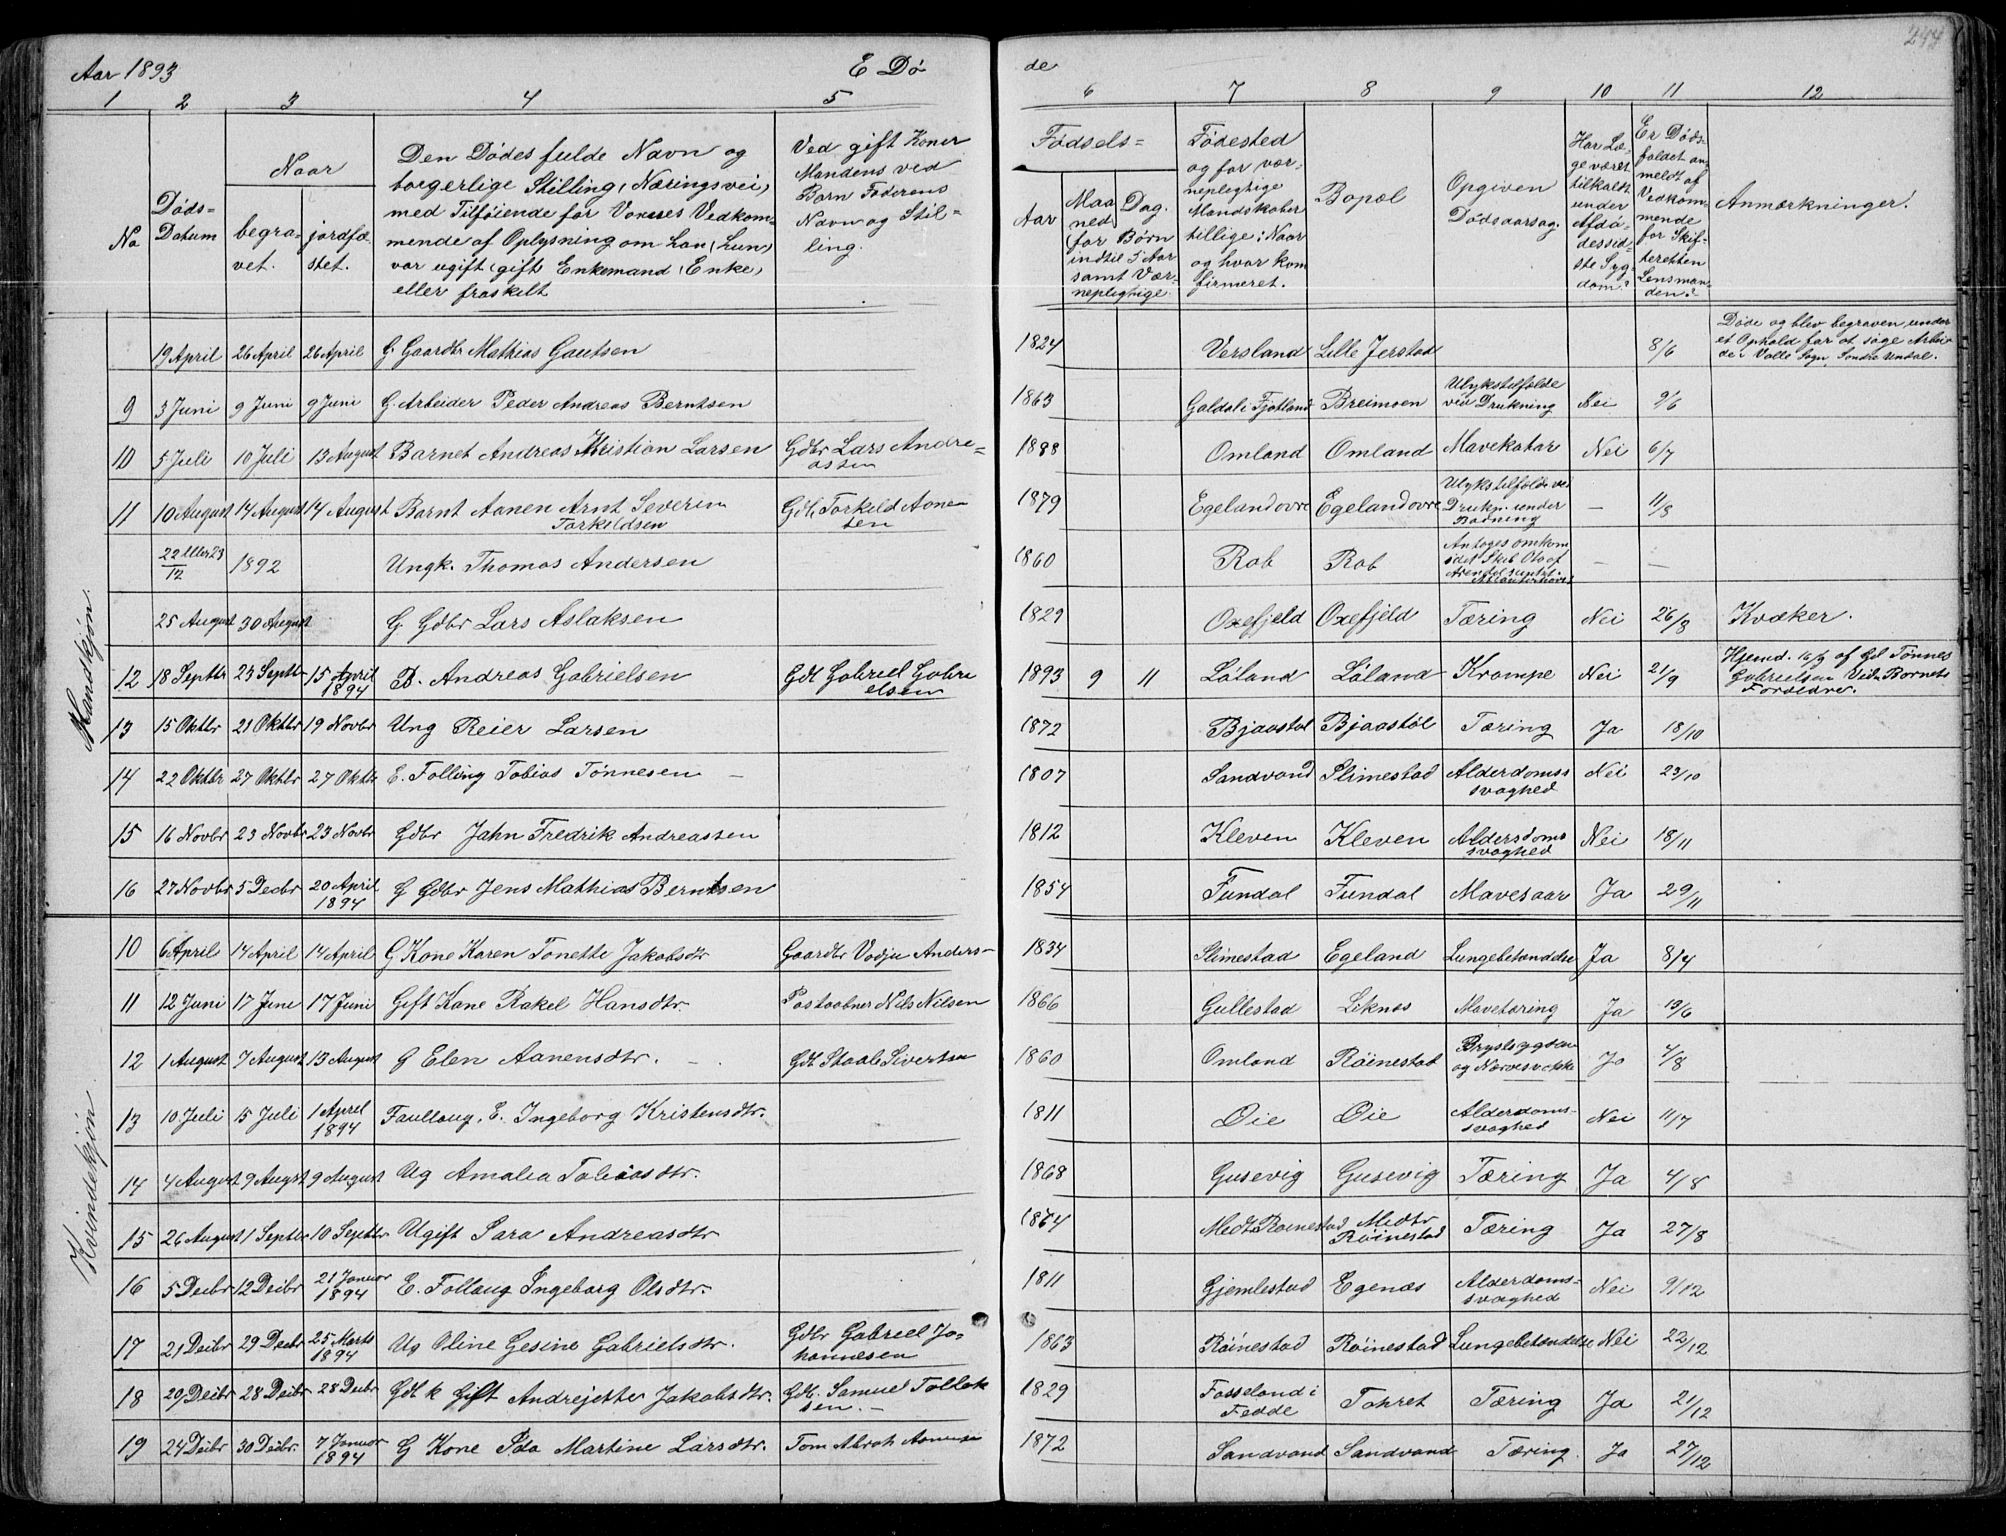 244
Aar 1893 E Dø de
1 2 3 4 5 6 7 8 9 10 11 12
No
Døds-
Datum
Naar
begra-
vet.
jordfæ-
stet.
Den Dødes fulde Navn og
borgerlige Stilling (Næringsvei)
med Tilføiende for Voxnes Vedkom-
mende af Oplysning om han (hun)
var ugift (gift Enkemand, Enke)
eller fraskilt
Ved gift Koner
Mandens ved
Barn Faderens
Navn og Stil-
ling.
Fødsels-
Aar
Maa
ned
Dag.
(for Børn
indtil 5 Aar
samt Vær-
nepligtige.
Fødested
og for vær-
nepligtige
Mandskaber
tillige: Naar
og hvor kon
firmeret.
Bopæl
Opgiven
Dødsaarsag.
Har Læ-
ge været
tilkaldt
under
Afdø-
dessid-
ste Syg-
dom?
Er Døds-
faldet an
meldt af
Vedkom-
mende
for Skif-
teretten
Lensman-
den?
Anmærkninger.
Mandskjøn.
19 April 26 April 26 April G. Gaardbr Mathias Gautsen 1824 Versland Lille Jerstad 8/6 Døde og blev begraven under
et Ophold for at søge Arbei
de i Valle Sogn, Søndre Undal.
9 3 Juni 9 Juni 9 Juni G. Arbeider Peder Andreas Berntsen 1863 Galdal i Fjotland Breimoen Ulykstilfælde
ved Drukning Nei 9/6
10 5 Juli 10 Juli 13 August Barnet Andreas Kristian Larsen Gdbr Lars Andre-
assen 1888 Omland Omland Mavekatar Nei 6/7
11 10 August 14 August 14 August Barnt Aanen Arnt Severin
Torkildsen Gdb Torkild Aanen
sen 1879 Egeland ovre Egeland ovre Ulykstilfælde ved
Drukn. under
Badning — 11/8
22 eller 23
/12 1892 Ungk. Thomas Andersen 1860 Rob Rob Antages omkom
med Skib Olo af
Arendal — —
25 August 30 August G. Gdbr Lars Aslaksen 1829 Oxefjeld Oxefjeld Tæring Nei 26/8 Kvæker.
12 18 Septbr 23 Septbr 15 April
1894 B. Andreas Gabrielsen Gdb Gabriel Gabri
elsen 1893 9 11 Løland Løland Krampe Nei 21/9 Hjemd. 16/9 af Gd Tønnes
Gabrielsen Vidn Barnets
Forældre.
13 15 Oktbr 21 Oktbr 19 Novbr Ung Reier Larsen 1872 Bjaastøl Bjaastøl Tæring Ja 18/10
14 22 Oktbr 27 Oktbr 27 Oktbr E. Follug Tobias Tønnesen — 1807 Sandvand Slimestad Alderdomss
svaghed Nei 23/10
15 16 Novbr 23 Novbr 23 Novbr Gdbr Jahn Fredrik Andreassen 1812 Kleven Kleven Aldersdoms
svaghed Nei 18/11
16 27 Novbr 5 Decbr 20 April
1894 G Gdbr Jens Mathias Berntsen 1854 Fundal Fundal Mavesaar Ja 29/11
Kvindekjøn.
10 6 April 14 April 14 April G Kone Karen Tonette Jakobsdtr Gaardbr Vodju Anders- 1834 Slimestad Egeland Lungebetændelse Ja 8/4
11 12 Juni 17 Juni 17 Juni Gift Kone Rakel Hansdtr. Postaabner Nils Nilsen 1866 Gullestad Liknes Mavetæring Ja 13/6
12 1 August 7 August 13 August G Elen Aanensdtr. — Gdb Staale Sivertsen 1860 Omland Røinestad Brystsygdom
og Nervesvække Ja 4/8
13 10 Juli 15 Juli 1 April
1894 Faullaug, E. Ingeborg Kristensdtr. 1811 Øie Øie Alderdoms-
svaghed Nei 11/7
14 4 August 9 August 9 August Ug Amalia Tobiasdtr. 1868 Gusevig Gusevig Tæring Ja 4/8
15 26 August 1 Septbr 10 Septbr Ugift Sara Andreasdtr 1874 Midt Røinestad Midtr
Røinestad Tæring Ja 27/8
16 5 Deibr 12 Deibr 21 Januar
1894 E. Follaug Ingeborg Olsdtr. 1811 Gjemlestad Egenæs Alderdoms-
svaghed Nei 9/12
17 21 Deibr 29 Decbr 25 Marts
1894 Ug Oline Gesine Gabrielsdtr. Gdbr Gabriel Jo-
hannesen 1863 Røinestad Røinestad Lungebetændelse Nei 22/12
18 20 Deibr 28 Deibr 28 Deibr Gdb k Gift Andrejette Jakobsdtr. Gdb. Samuel Tollak
sen. — 1829 Fosseland i
Fedde Tohret Tæring Ja 21/12
19 24 Deibr 30 Deibr. 7 Januar
1894 G Kone Ida Martine Larsdtr. Tom Abrah Asmusen 1872 Sandvand Sandvand Tæring. Ja 27/12